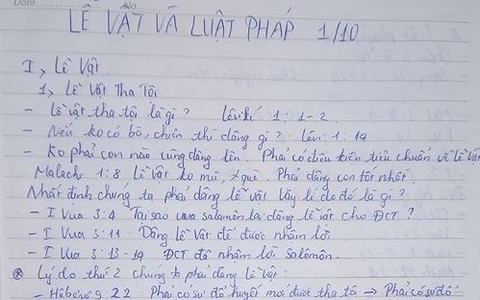 Date No
LỄ VẬT VÀ LUẬT PHÁP 1/10
I, Lễ Vật
1, Lễ Vật Tha Tội
- Lễ vật tha tội là gì? Lêvi kí 1: 1-2
- Nếu ko có bò, chiên thì dâng gì? Lêvi: 1:14
- Ko phải con nào cũng dâng lên. Phải có điều kiện tiêu chuẩn về lễ vật
Malachi 1:8 Lễ vật ko mù, ko què. Phải dâng con tốt nhất.
Nhất định chúng ta phải dâng lễ vật vậy lí do đó là gì?
- I Vua 3:4 Tại sao vua salômôn lại dâng lễ vật cho ĐCT?
- I Vua 3:11 Dâng lễ vật để được nhậm lời
- I Vua 3:13-14 ĐCT đã nhậm lời Salômôn.
* Lý do thứ 2 chúng ta phải dâng lễ vật:
- Hêbơrơ 9:22 Phải có sự đổ huyết mới được tha tội → Phải có sự đổ